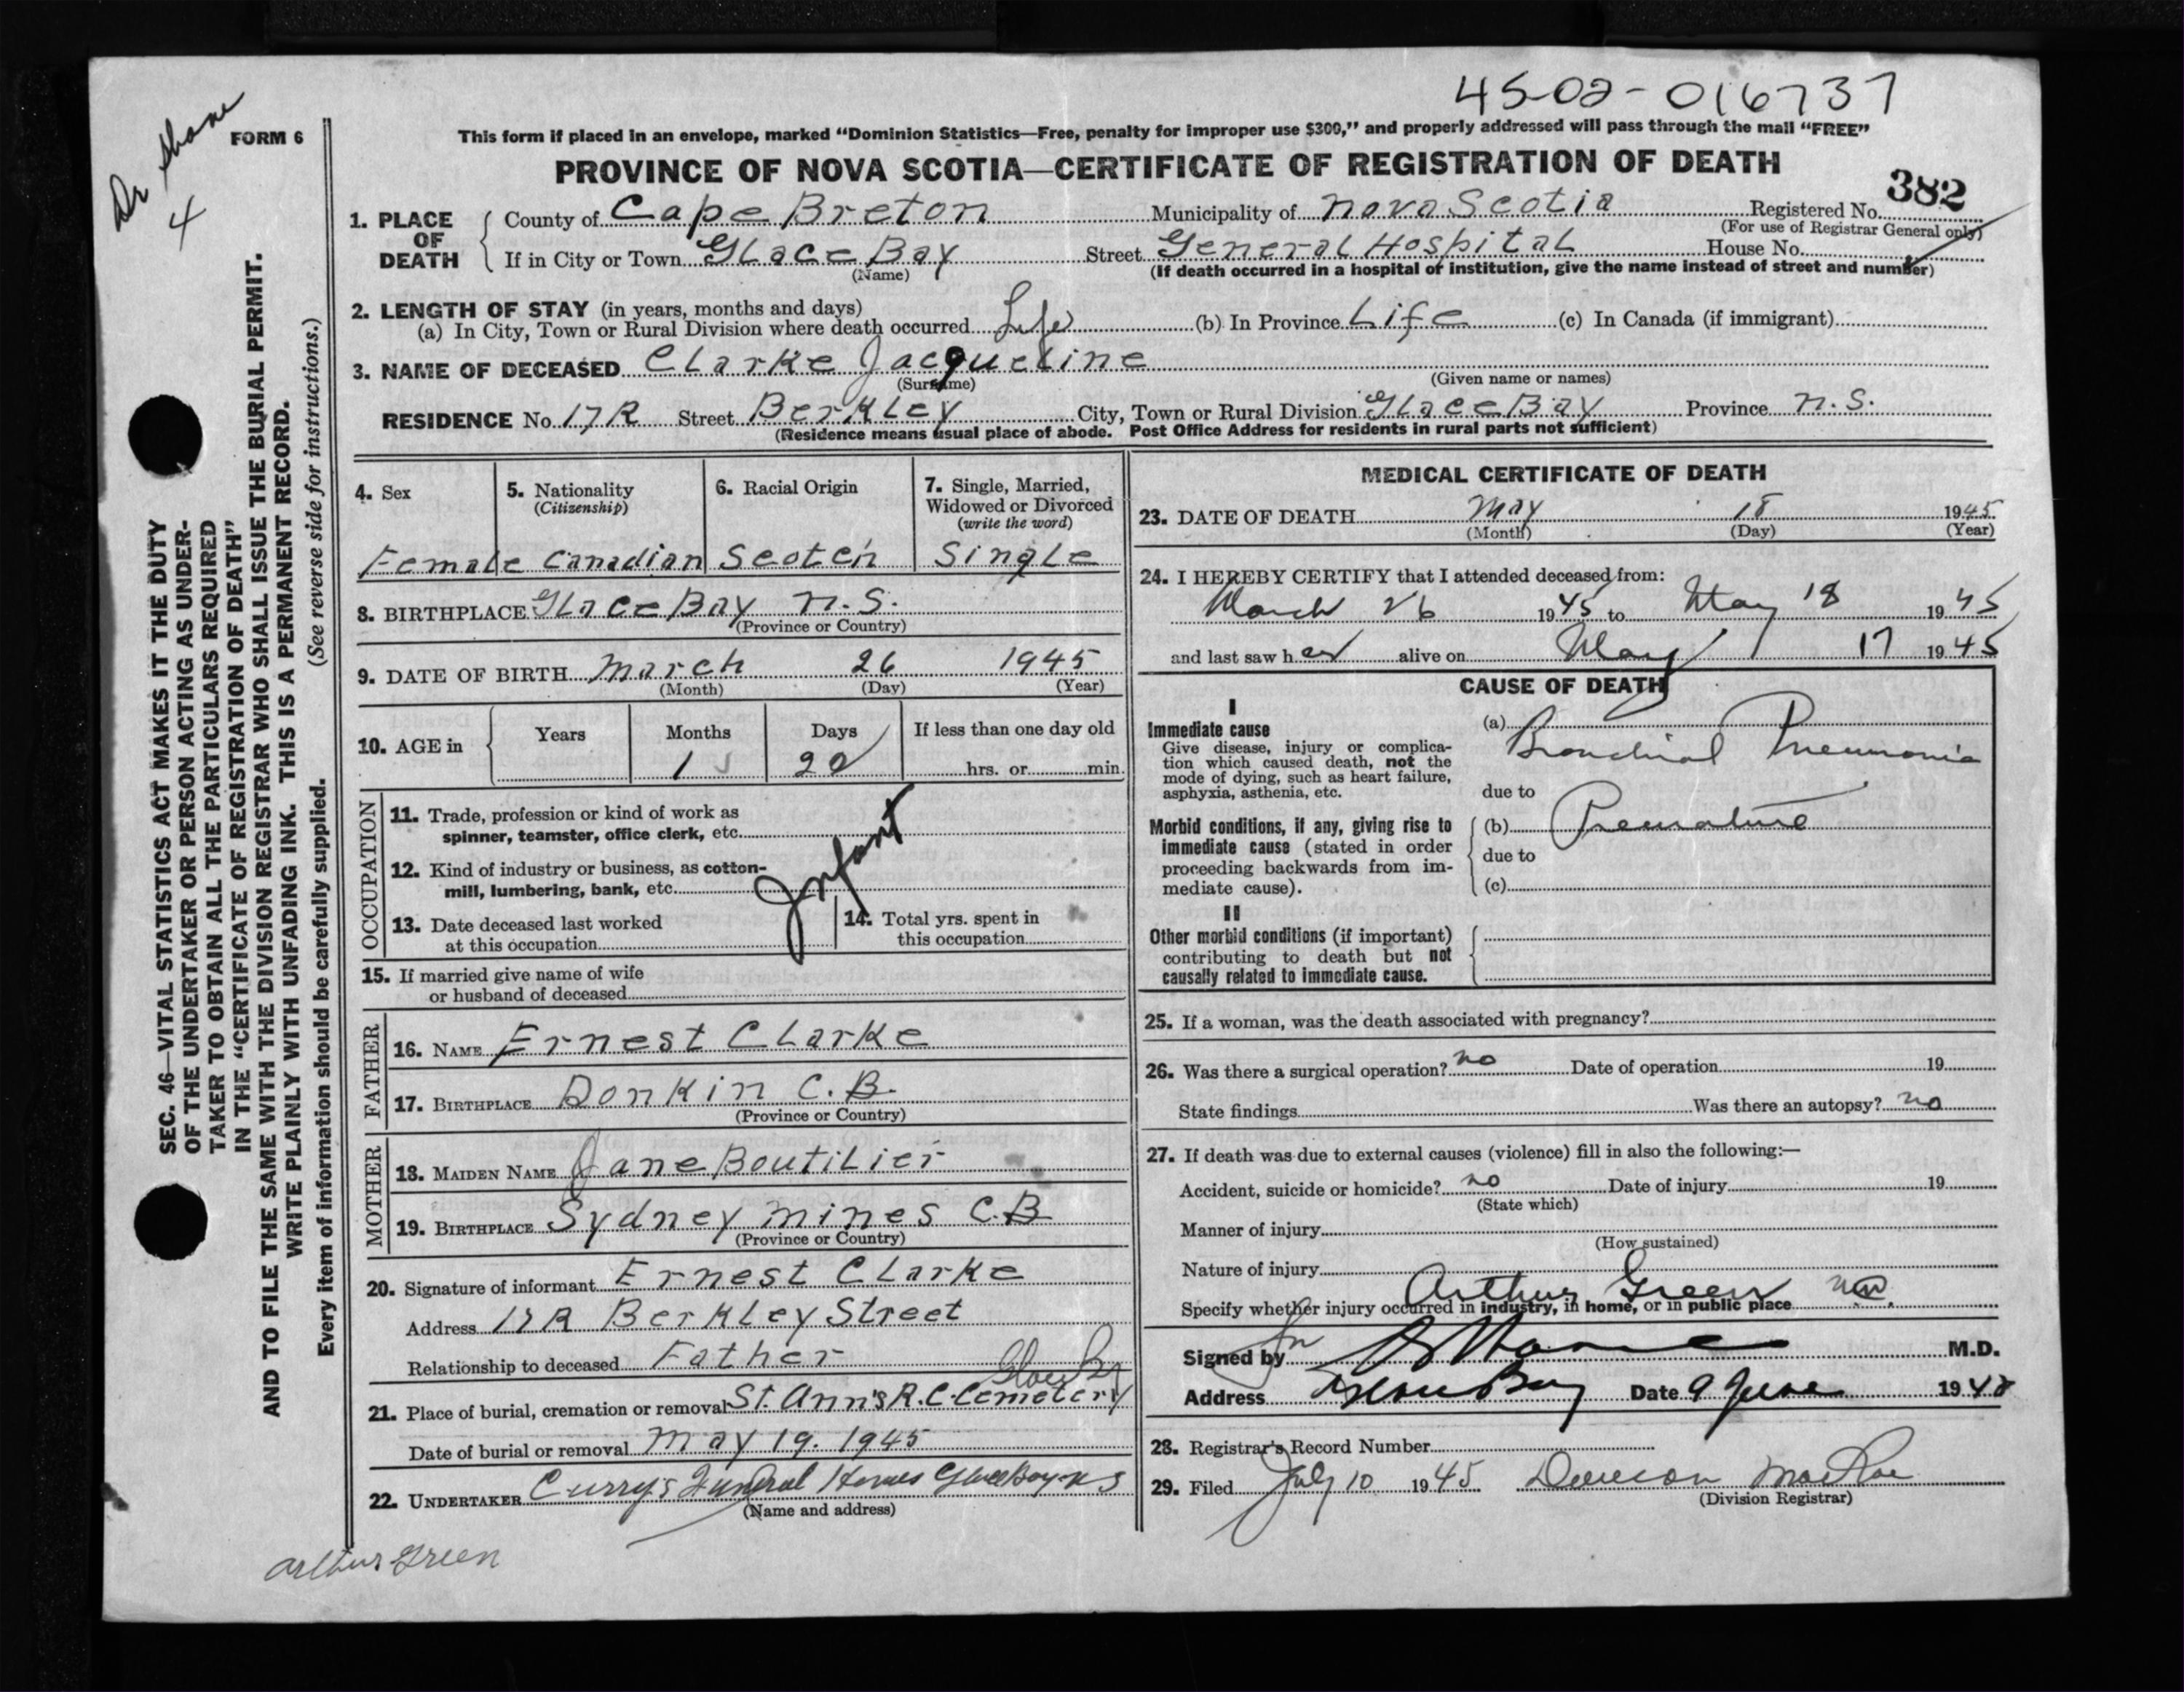 45-02-016737
Dr Shane
4
FORM 6
This form if placed in an envelope, marked "Dominion Statistics—Free, penalty for improper use $300," and properly addressed will pass through the mail "FREE"
PROVINCE OF NOVA SCOTIA—CERTIFICATE OF REGISTRATION OF DEATH
382
1. PLACE OF DEATH
County of Cape Breton Municipality of Nova Scotia Registered No.
(For use of Registrar General only)
If in City or Town Glace Bay Street General Hospital House No.
(Name) (If death occurred in a hospital or institution, give the name instead of street and number)
2. LENGTH OF STAY (in years, months and days)
(a) In City, Town or Rural Division where death occurred Life (b) In Province Life (c) In Canada (if immigrant)
3. NAME OF DECEASED Clarke Jacqueline
(Surname) (Given name or names)
RESIDENCE No. 17R Street Berkley City, Town or Rural Division Glace Bay Province N.S.
(Residence means usual place of abode. Post Office Address for residents in rural parts not sufficient)
4. Sex 5. Nationality (Citizenship) 6. Racial Origin 7. Single, Married, Widowed or Divorced (write the word)
Female Canadian Scotch Single
8. BIRTHPLACE Glace Bay N.S.
(Province or Country)
9. DATE OF BIRTH March 26 1945
(Month) (Day) (Year)
10. AGE in Years Months Days If less than one day old
1 22 hrs. or min.
OCCUPATION
11. Trade, profession or kind of work as
spinner, teamster, office clerk, etc.
12. Kind of industry or business, as cotton-
mill, lumbering, bank, etc.
Infant
13. Date deceased last worked
at this occupation
14. Total yrs. spent in
this occupation
15. If married give name of wife
or husband of deceased
FATHER
16. NAME Ernest Clarke
17. BIRTHPLACE Donkin C.B.
(Province or Country)
MOTHER
18. MAIDEN NAME Jane Boutilier
19. BIRTHPLACE Sydney Mines C.B
(Province or Country)
20. Signature of informant Ernest Clarke
Address 17R Berkley Street
Relationship to deceased Father
Glace Bay
21. Place of burial, cremation or removal St. Ann's R.C. Cemetery
Date of burial or removal May 19. 1945
22. UNDERTAKER Curry's Funeral Homes Glace Bay NS
(Name and address)
Arthur Green
MEDICAL CERTIFICATE OF DEATH
23. DATE OF DEATH May 18 1945
(Month) (Day) (Year)
24. I HEREBY CERTIFY that I attended deceased from:
March 26 1945 to May 18 1945
and last saw her alive on May 17 1945
CAUSE OF DEATH
I
Immediate cause
Give disease, injury or complica-
tion which caused death, not the
mode of dying, such as heart failure,
asphyxia, asthenia, etc.
(a) Bronchial Pneumonia
due to
Morbid conditions, if any, giving rise to
immediate cause (stated in order
proceeding backwards from im-
mediate cause).
(b) Premature
due to
(c)
II
Other morbid conditions (if important)
contributing to death but not
causally related to immediate cause.
25. If a woman, was the death associated with pregnancy?
26. Was there a surgical operation? no Date of operation 19
State findings Was there an autopsy? no
27. If death was due to external causes (violence) fill in also the following:—
Accident, suicide or homicide? no Date of injury 19
(State which)
Manner of injury
(How sustained)
Nature of injury
Arthur Green
Specify whether injury occurred in industry, in home, or in public place
Signed by M.D.
Address Glace Bay Date 9 June 1948
28. Registrar's Record Number
29. Filed July 10 1945
(Division Registrar)
SEC. 46—VITAL STATISTICS ACT MAKES IT THE DUTY
OF THE UNDERTAKER OR PERSON ACTING AS UNDER-
TAKER TO OBTAIN ALL THE PARTICULARS REQUIRED
IN THE "CERTIFICATE OF REGISTRATION OF DEATH"
AND TO FILE THE SAME WITH THE DIVISION REGISTRAR WHO SHALL ISSUE THE BURIAL PERMIT.
WRITE PLAINLY WITH UNFADING INK. THIS IS A PERMANENT RECORD.
Every item of information should be carefully supplied. (See reverse side for instructions.)